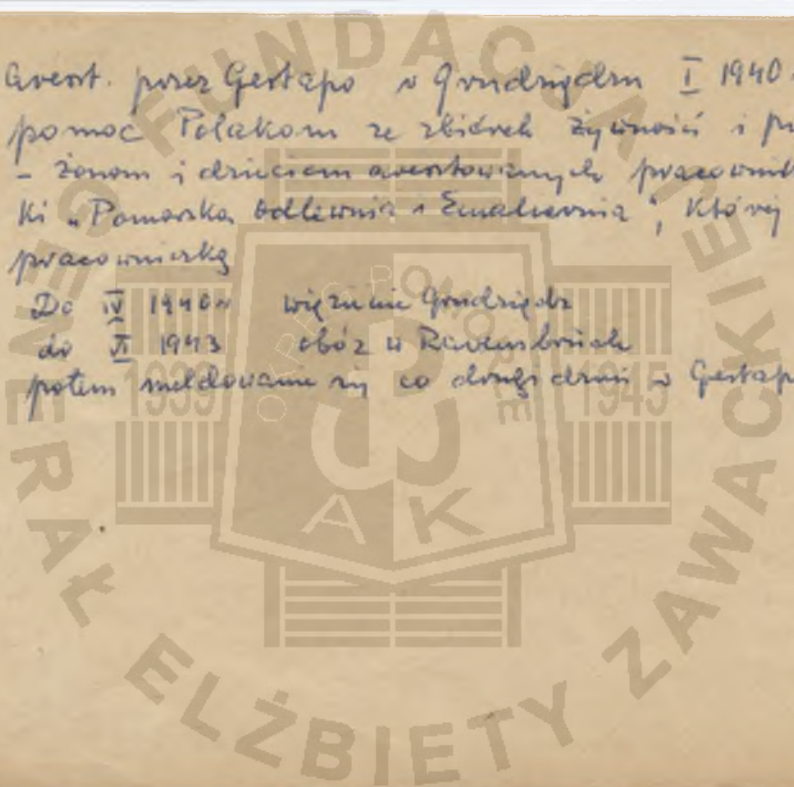 areszt. przez Gestapo w Grudziądzu I 1940 r
pomoc Polakom ze zbiórek żywności i
- żonom i dzieciom aresztowanych pracownik
ki „Pomorska Odlewnia i Emaliernia", której
pracowniczką
Do IV 1940 r więzienie Grudziądz
do VI 1943 obóz w Ravensbrück
potem meldowanie się co drugi dzień w Gestap
FUNDACJA GENERAŁ ELŻBIETY ZAWACKIEJ
OKRĘG POMORZE
1939 1945
AK